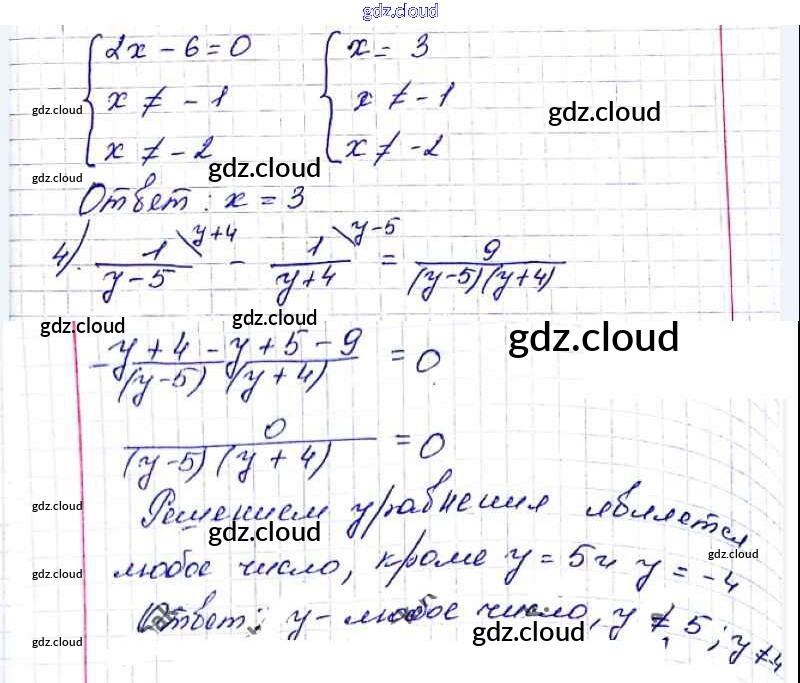 gdz.cloud
{2x - 6 = 0 {x = 3
gdz.cloud {x ≠ -1 {x ≠ -1 gdz.cloud
{x ≠ -2 {x ≠ -2
gdz.cloud gdz.cloud
Ответ: x = 3
4). 1/(y-5) \y+4 - 1/(y+4) \y-5 = 9/((y-5)(y+4))
gdz.cloud gdz.cloud gdz.cloud
(-y+4-y+5-9)/((y-5)(y+4)) = 0
0/((y-5)(y+4)) = 0
gdz.cloud Решением уравнения является
gdz.cloud gdz.cloud
gdz.cloud любое число, кроме y = 5 и y = -4
Ответ: y - любое число, y ≠ 5; y ≠ -4
gdz.cloud gdz.cloud